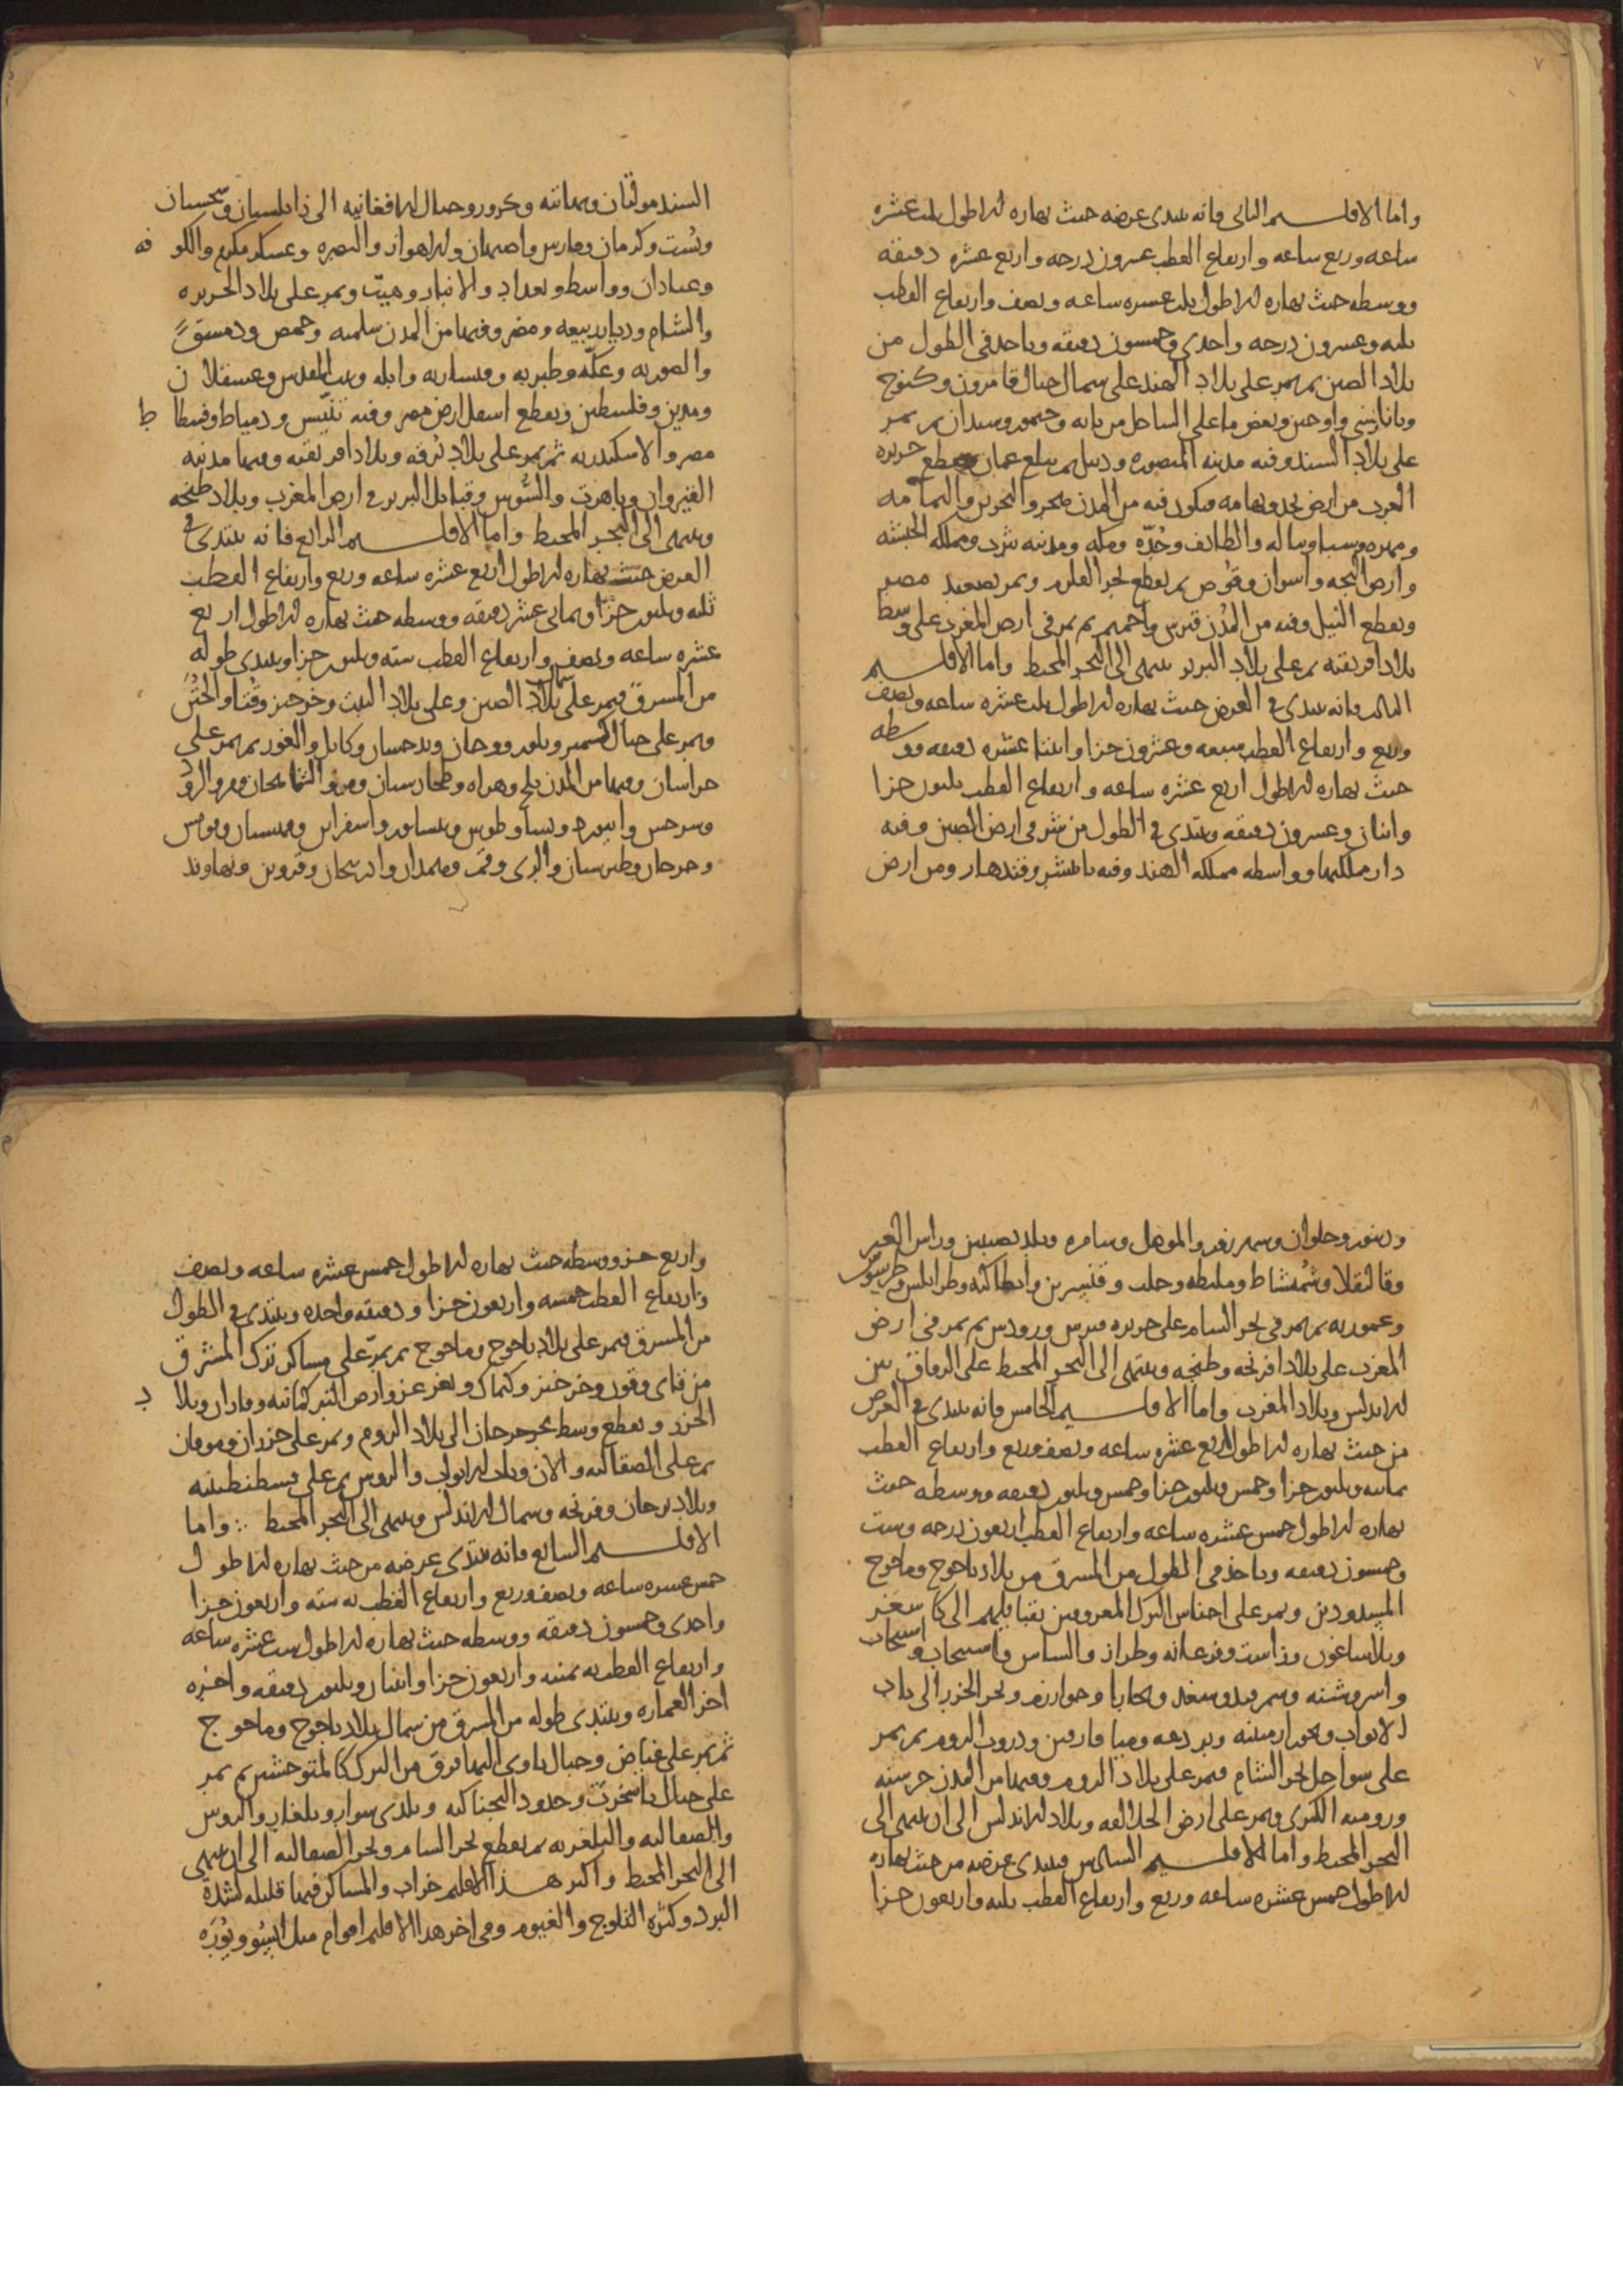 ٧
واما الاقليم الثانى فانه يبتدى عرضه حيث نهاره الاطول ثلث عشره
ساعه وربع ساعه وارتفاع القطب عشرون درجه واربع عشره دقيقه
ووسطه حيث نهاره الاطول ثلث عشره ساعه ونصف وارتفاع القطب
ثلثه وعشرون درجه واحدى وخمسون دقيقه وياخذ فى الطول من
بلاد الصين ثم يمر على بلاد الهند على شمال جبال قامرون وكنوج
وبانارسى واوجين وبعض ما على الساحل من تانه وجيمور وسندان ثم يمر
على بلاد السند وفيه مدينه المنصوره وديبل ثم يبلغ عمان فيقطع جزيره
العرب من ارض نجد وتهامه فيكون فيه من المدن هجر والبحرين واليمامه
ومهره وسبا وتباله والطائف وجدّه ومكه ومدينه يثرب ومملكه الحبشه
وارض البجه واسوان وقوص ثم يقطع بحر القلزم ويمر بصعيد مصر
ويقطع النيل وفيه من المدن واخميم ثم يمر فى ارض المغرب على وسط
بلاد افريقيه ثم على بلاد البربر ينتهى الى البحر المحيط واما الاقليم
الثالث فانه يبتدى فى العرض حيث نهاره الاطول ثلث عشره ساعه ونصف
وربع وارتفاع القطب سبعه وعشرون جزا واثنتا عشره دقيقه ووسطه
حيث نهاره الاطول اربع عشره ساعه وارتفاع القطب ثلثون جزا
واثنان وعشرون دقيقه ويبتدى فى الطول من شرقى ارض الصين وفيه
دار ملكها وواسطه مملكه الهند وفيه تانيشر وقندهار ومن ارض
السند مولتان وبهاتيه وكرور وجبال الافغانيه الى زابلستان وسجستان
وبُست وكرمان وفارس واصبهان والاهواز والبصره وعسكر مكرم والكوفه
وعبادان وواسط وبغداد والانبار وهيت ويمر على بلاد الجزيره
والشام وديار ربيعه ومضر وفيها من المدن سلميه وحمص ودمشق
والصوريه وعكّه وطبريه وقيساريه وايله وبيت المقدس وعسقلان
ومدين وفلسطين ويقطع اسفل ارض مصر وفيه تنّيس ودمياط وفسطاط
مصر والاسكندريه ثم يمر على بلاد برقه وبلاد افريقيه وفيها مدينه
القيروان وتاهرت والسُّوس وقبائل البربر فى ارض المغرب وبلاد طنجه
وينتهى الى البحر المحيط واما الاقليم الرابع فانه يبتدى فى
العرض حيث نهاره الاطول اربع عشره ساعه وربع وارتفاع القطب
ثلثه وثلثون جزا وثمانى عشر دقيقه ووسطه حيث نهاره الاطول اربع
عشره ساعه ونصف وارتفاع القطب سته وثلثون جزا ويبتدى طوله
من المشرق فيمر على شمال بلاد الصين وعلى بلاد التبت وخرخيز وقتا والختن
ويمر على جبال كشمير وبلور ووخان وبدخشان وكابل والغور ثم يمر على
خراسان وفيها من المدن بلخ وهراه وطخارستان ومرو الشاهجان ومرو الروذ
وسرخس وابيورد ونسا وطوس ونيسابور واسفراين وقهستان وقومس
وجرجان وطبرستان والرى وقم وهمدان واذربيجان وقزوين ونهاوند
٨
ودينور وحلوان وشهرزور والموصل وسامره وبلد نصيبين وراس العين
وقاليقلا وشُمشاط وملطيه وحلب وقنسرين وانطاكيه وطرابلس وطرسوس
وعموريه ثم يمر فى بحر الشام على جزيره قبرس ورودس ثم يمر فى ارض
المغرب على بلاد افرنجه وطنجه وينتهى الى البحر المحيط على الزقاق بين
الاندلس وبلاد المغرب واما الاقليم الخامس فانه يبتدى فى العرض
من حيث نهاره الاطول اربع عشره ساعه ونصف وربع وارتفاع القطب
ثمانيه وثلثون جزا وخمس وثلثون دقيقه ووسطه حيث
نهاره الاطول خمس عشره ساعه وارتفاع القطب اربعون درجه وست
وخمسون دقيقه وياخذ فى الطول من المشرق من بلاد ياجوج وماجوج
المسدودين ويمر على اجناس الترك المعروفين بقبائلهم الى كاشغر
وبلاساغون وراشت وفرغانه وطراز والشاش واسبيجاب
واسروشنه وسمرقند وسغد وبخارا وخوارزم وبحر الخزر الى باب
الابواب وارمينيه وبردعه وميافارقين ودروب الروم ثم يمر
على سواحل بحر الشام فيمر على بلاد الروم وفيها من المدن خرشنه
وروميه الكبرى ويمر على ارض الجلالقه وبلاد الاندلس الى ان ينتهى الى
البحر المحيط واما الاقليم السادس فيبتدى عرضه من حيث نهاره
الاطول خمس عشره ساعه وربع وارتفاع القطب ثلثه واربعون جزا
واربع حيث نهاره الاطول خمس عشره ساعه ونصف
وارتفاع القطب خمسه واربعون جزا ودقيقه واحده ويبتدى فى الطول
من المشرق فيمر على بلاد ياجوج وماجوج ثم يمرّ على مساكن ترك المشرق
من قاى وقون وخرخيز وكيماك وتغزغز وارض التركمانيه وفاراب وبلاد
الخزر ويقطع وسط بحر جرجان الى بلاد الروم ويمر على خزران وموقان
ثم على الصقالبه والان وباب الابواب والروس ثم على قسطنطينيه
وبلاد برجان وفرنجه وشمال الاندلس وينتهى الى البحر المحيط ∴ واما
الاقليم السابع فانه يبتدى عرضه من حيث نهاره الاطول
خمس عشره ساعه ونصف وربع وارتفاع القطب به سته واربعون جزا
واحدى وخمسون دقيقه ووسطه حيث نهاره الاطول ست عشره ساعه
وارتفاع القطب به ثمنيه واربعون جزا واثنتان وثلثون دقيقه واخره
اخر العماره ويبتدى طوله من المشرق من شمال بلاد ياجوج وماجوج
ثم يمر على غياض وجبال ياوى اليها فرق من الترك كالمتوحشين ثم يمر
على جبال باشخرت وحدود البجناكيه وبلدى سوار وبلغار والروس
والصقالبه والبلغريه ثم يقطع بحر الشام وبحر الصقالبه الى ان ينتهى
الى البحر المحيط واكثر هذا الاقليم خراب والمساكن فيها قليله لشدة
البرد وكثره الثلوج والغيوم وفى اخر هذا الاقليم اقوام مثل ايسُو ويُوره